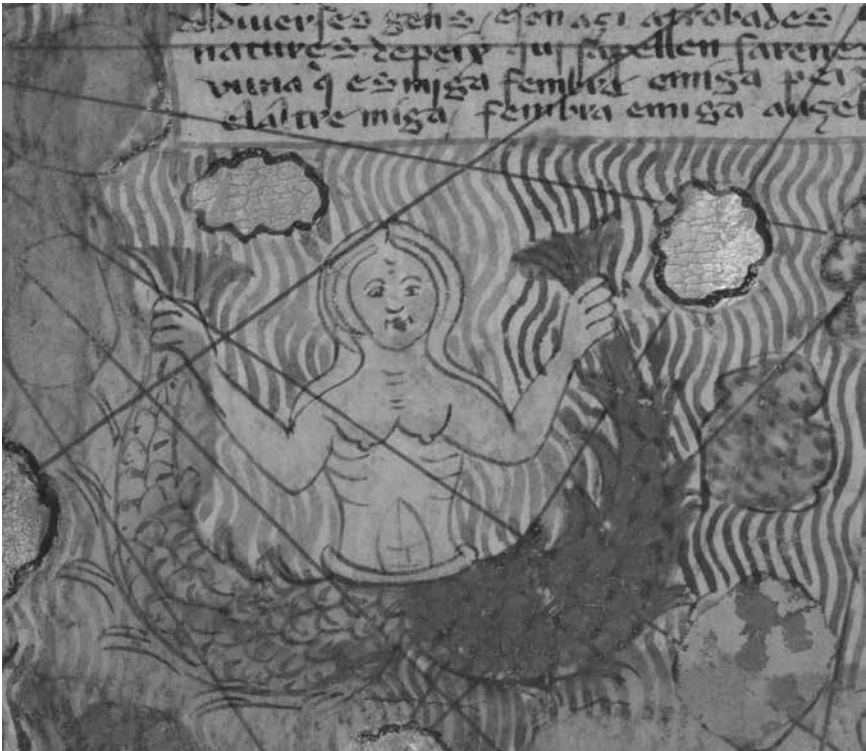 de diuerses gens / eson açi atrobades
natures de peix qui sapellen sarenes
vuna q̄ es miga fembre emiga peix
elaltre miga / fembra emiga auçe